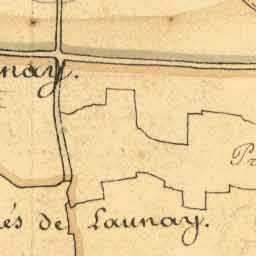 nay.
Pr
és de Launay.